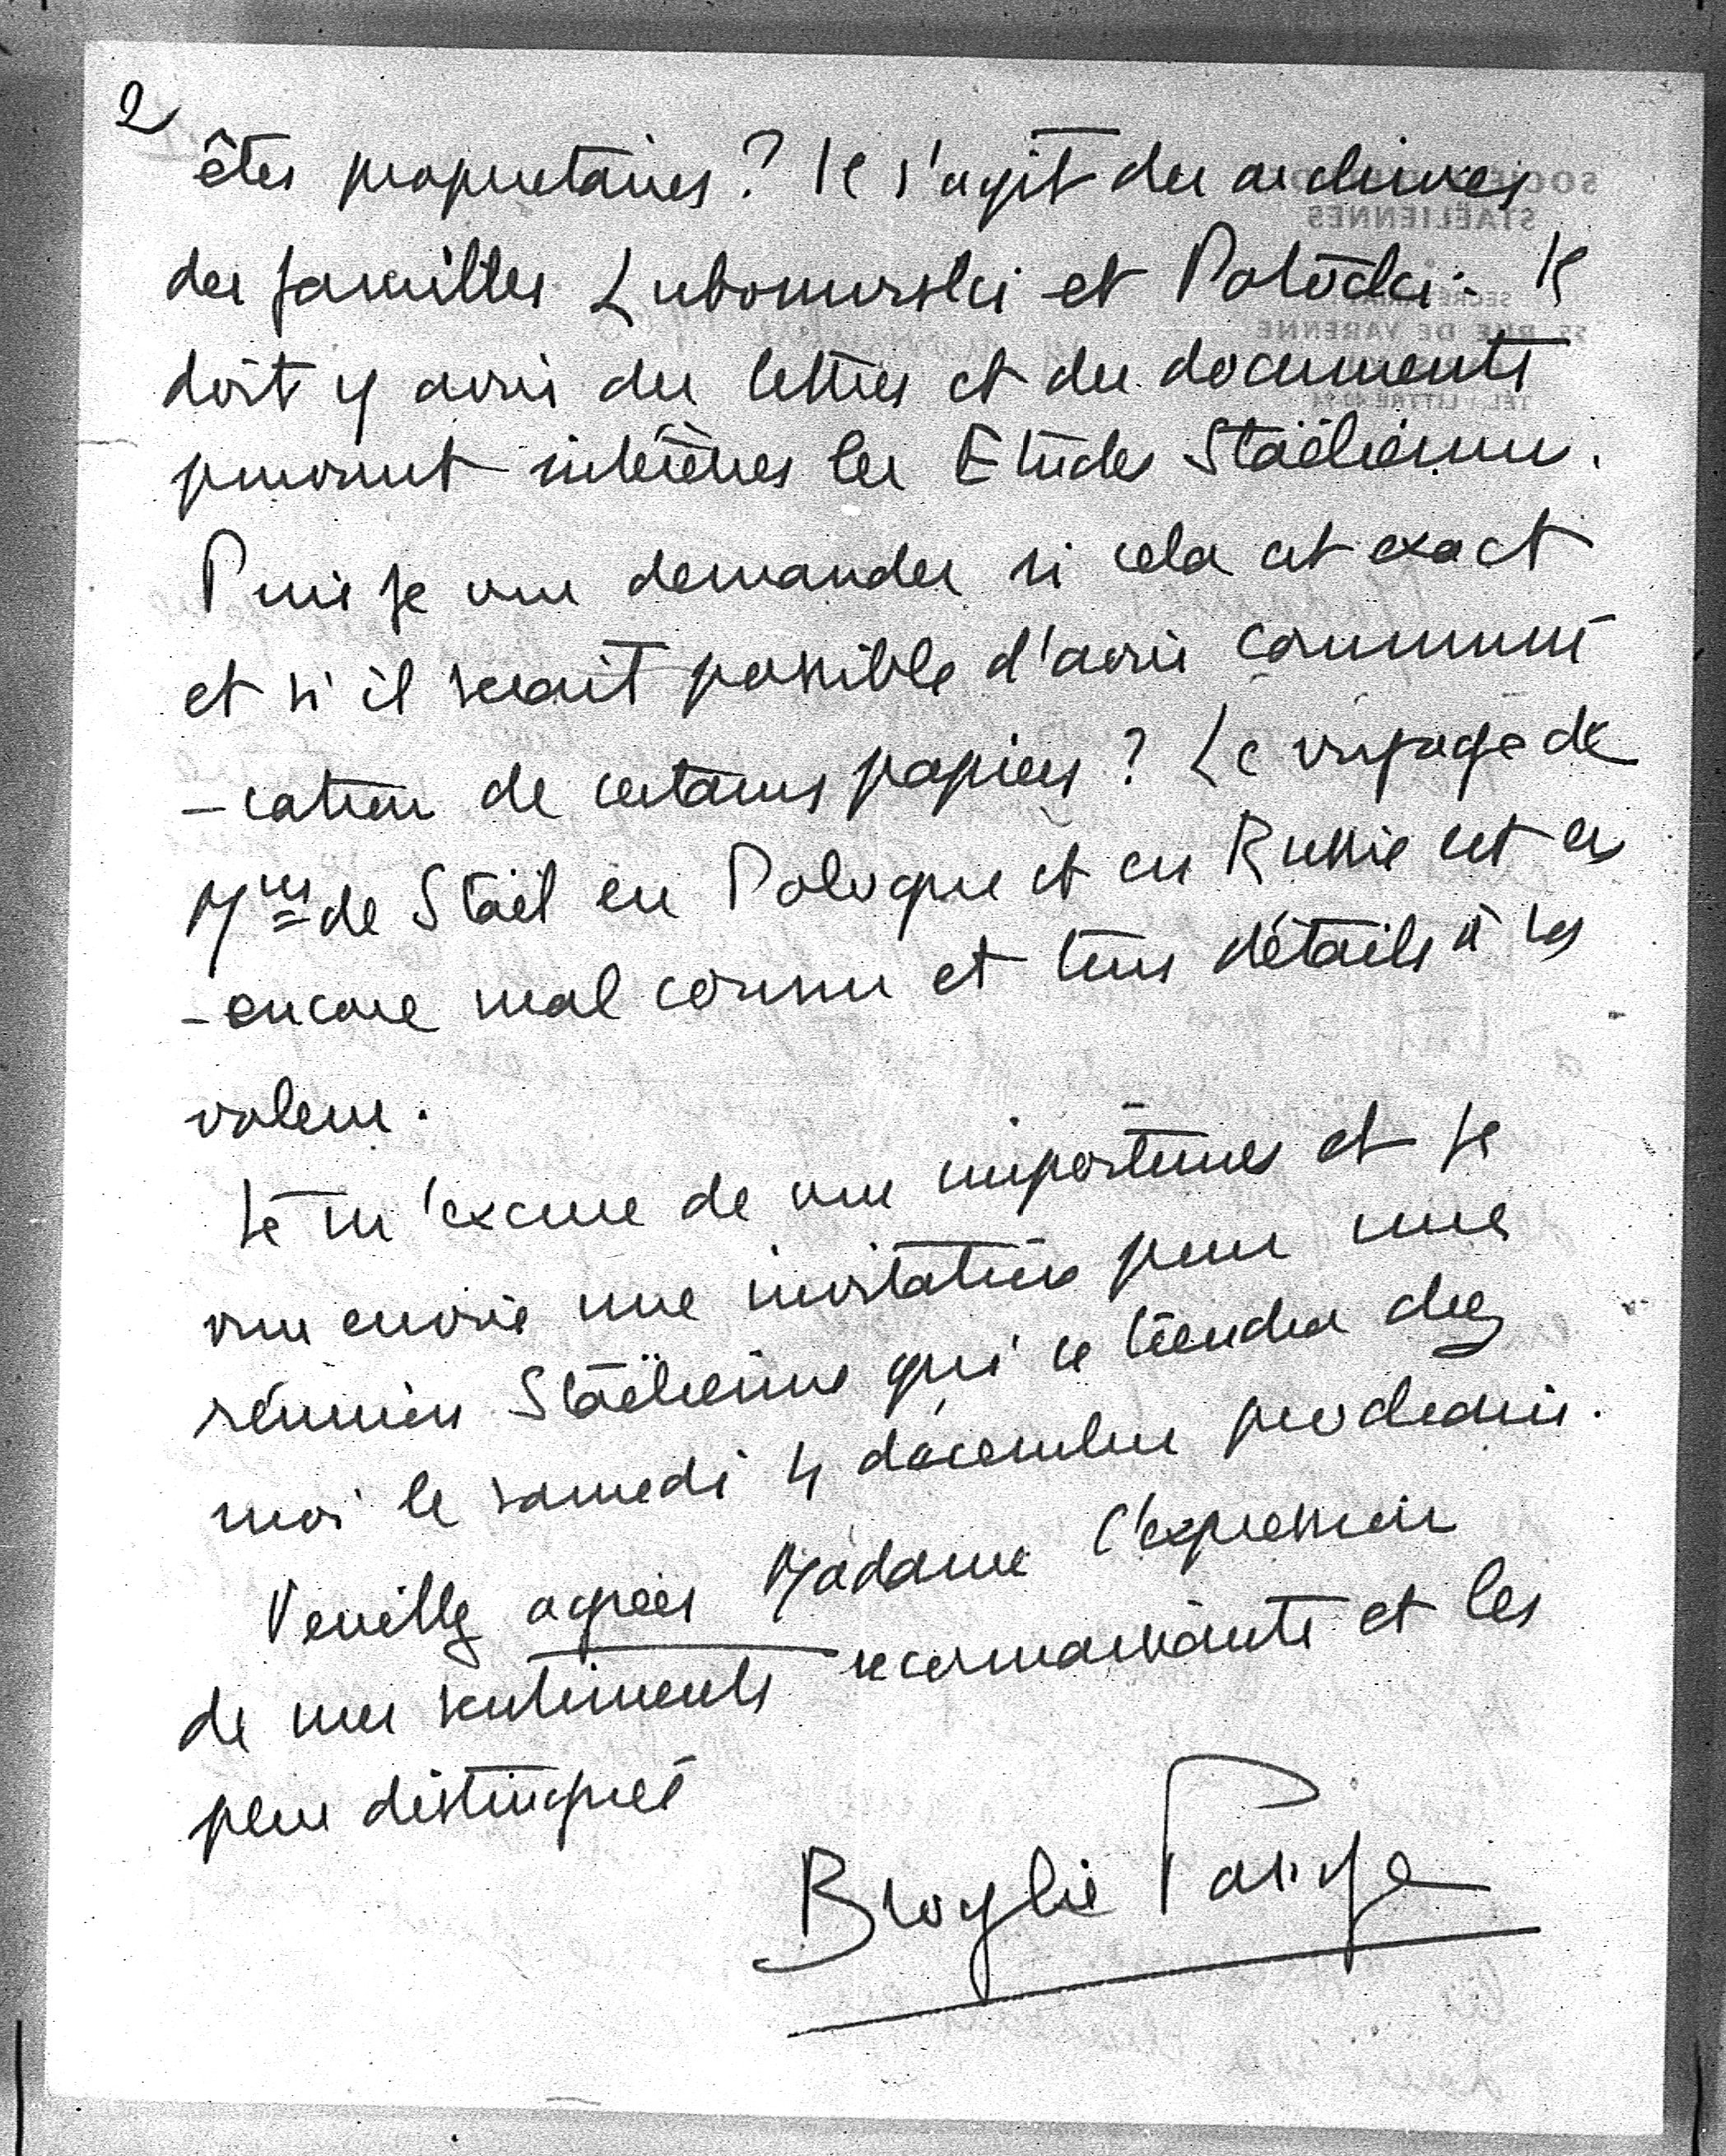 2
êtes propriétaires? Il s'agit des archives
des familles Lubomirski et Potocki. Il
doit y avoir des lettres et des documents
pouvant intéresser les Etudes Staëliennes.
Puis je vous demander si cela est exact
et si il serait possible d'avoir communi
-cation de certains papiers? Le voyage de
Mme de Staël en Pologne et en Russie est
encore mal connu et tous détails a sa
valeur.
Je m'excuse de vous importuner et je
vous envoie une invitation pour une
réunion Staëlienne qui se tiendra chez
moi le samedi 4 décembre prochain.
Veuillez agréer Madame l'expression
de mes sentiments reconnaissants et les
plus distingués
Broglie Pange
SOCIÉTÉ
STAËLIENNES
RUE DE VARENNE
TÉL. LITTRÉ